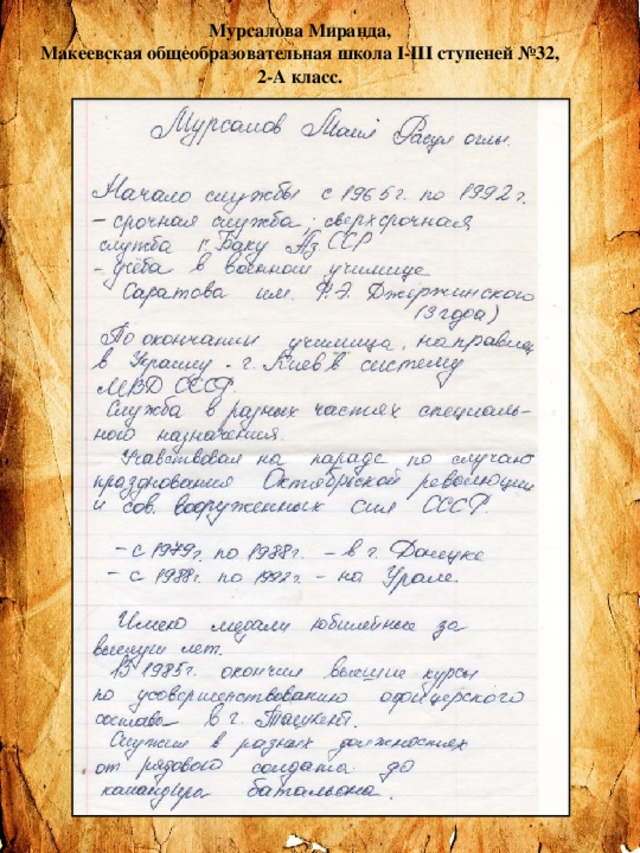 Мурсалова Миранда,
Макеевская общеобразовательная школа I-III ступеней №32,
2-А класс.
Мурсалов Расул оглы.
Начало службы с 1965г. по 1992г.
– срочная служба, сверхсрочная
служба г. Баку Аз ССР
– учёба в военном училище
Саратова им. Ф.Э. Джержинского
(3 года)
По окончании училища, направлен
в Украину - г. Киев в систему
МВД СССР.
Служба в разных частях специаль-
ного назначения.
Учавствовал на параде по случаю
празднования Октябрьской революции
и сов. вооруженных сил СССР.
– с 1979г. по 1988г. – в г. Донецке
– с 1988г. по 1992г. – на Урале.
Имею медали юбилейные за
выслуги лет.
В 1985г. окончил высшие курсы
по усовершенствованию офицерского
состава в г. Ташкент.
Служил в разных должностях
от рядового солдата до
командира батальона.